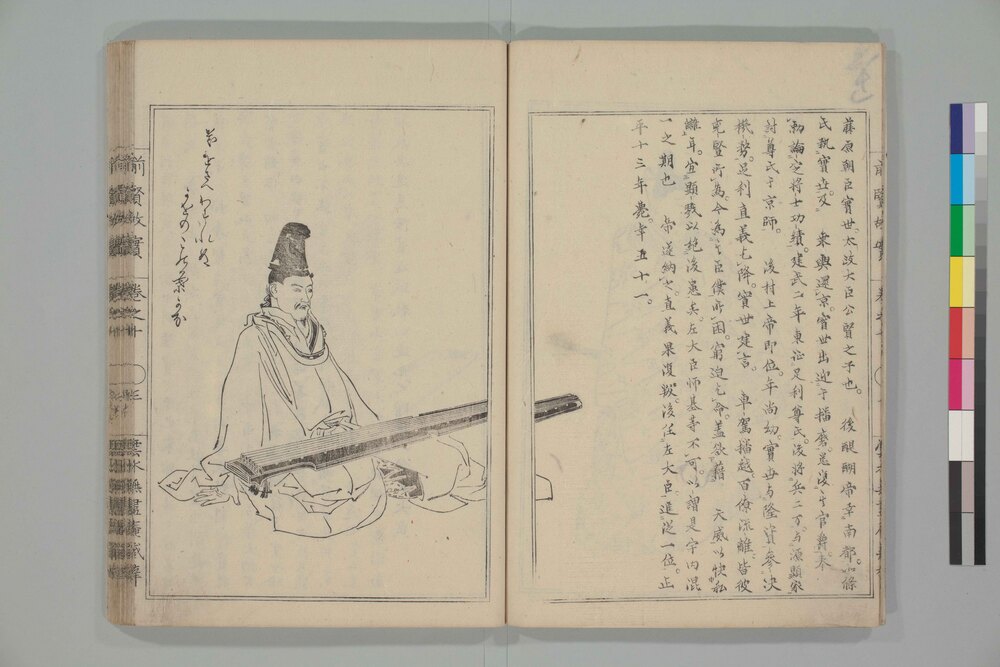 藤原朝臣實世太政大臣公賢之子也。 後醍醐帝幸南都北條
氏執實世。及 乘輿還京。實世出迎于播磨。尋復其官爵。
勅論定將士功績。建武二年東征足利尊氏。後將兵二万。与源顯家
討尊氏于京師。 後村上帝即位。年尚幼。實世与隆資參决
機務。足利直義乞降。實世建言。 車駕播越。百僚流離。皆彼
兇豎所為。今為其臣僕所困。窮迫乞命。蓋欲藉 天威以快私
讎耳。宜顯戮以絶後患矣。左大臣師基等不可。以謂是宇内混
一之期也 帝遂納之。直義果復叛。後任左大臣。進從一位。正
平十三年薨。年五十一。
前賢故實 卷之十